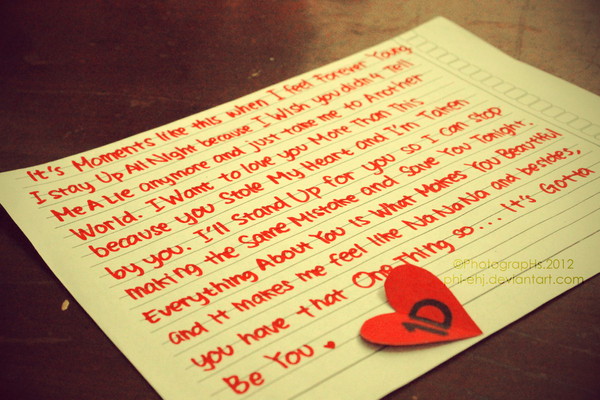 It's Moments like this when I feel Forever Young
I stay Up All Night because I Wish you didn't Tell
Me A Lie anymore and just take me to Another
World. I Want to love you More Than This
because you Stole My Heart and I'm Taken
by you. I'll Stand Up for you so I Can Stop
making the Same Mistake and Save You Tonight.
Everything About You Is What Makes You Beautiful
and it makes me feel like Na Na Na and besides,
you have that One Thing so... It's Gotta
Be You ♥
1D
©Photographs.2012
phi-ehj.deviantart.com